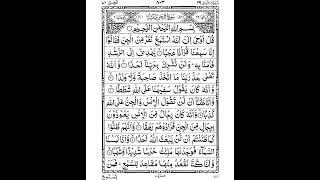 ٨٠٣
بِسْمِ اللهِ الرَّحْمٰنِ الرَّحِيْمِ
قُلْ اُوْحِيَ اِلَيَّ اَنَّهُ اسْتَمَعَ نَفَرٌ مِّنَ الْجِنِّ فَقَالُوْٓا
اِنَّا سَمِعْنَا قُرْاٰنًا عَجَبًا ۙ يَّهْدِيْٓ اِلَى الرُّشْدِ
فَاٰمَنَّا بِهٖ ۭ وَلَنْ نُّشْرِكَ بِرَبِّنَآ اَحَدًا ۙ وَّاَنَّهٗ
تَعٰلٰى جَدُّ رَبِّنَا مَا اتَّخَذَ صَاحِبَةً وَّلَا وَلَدًا ۙ
وَّاَنَّهٗ كَانَ يَقُوْلُ سَفِيْهُنَا عَلَى اللهِ شَطَطًا ۙ
وَّاَنَّا ظَنَنَّآ اَنْ لَّنْ تَقُوْلَ الْاِنْسُ وَالْجِنُّ عَلَى اللهِ
كَذِبًا ۙ وَّاَنَّهٗ كَانَ رِجَالٌ مِّنَ الْاِنْسِ يَعُوْذُوْنَ
بِرِجَالٍ مِّنَ الْجِنِّ فَزَادُوْهُمْ رَهَقًا ۙ وَّاَنَّهُمْ ظَنُّوْا
كَمَا ظَنَنْتُمْ اَنْ لَّنْ يَّبْعَثَ اللهُ اَحَدًا ۙ وَّاَنَّا لَمَسْنَا
السَّمَآءَ فَوَجَدْنٰهَا مُلِئَتْ حَرَسًا شَدِيْدًا وَّشُهُبًا ۙ
وَّاَنَّا كُنَّا نَقْعُدُ مِنْهَا مَقَاعِدَ لِلسَّمْعِ ۭ فَمَنْ